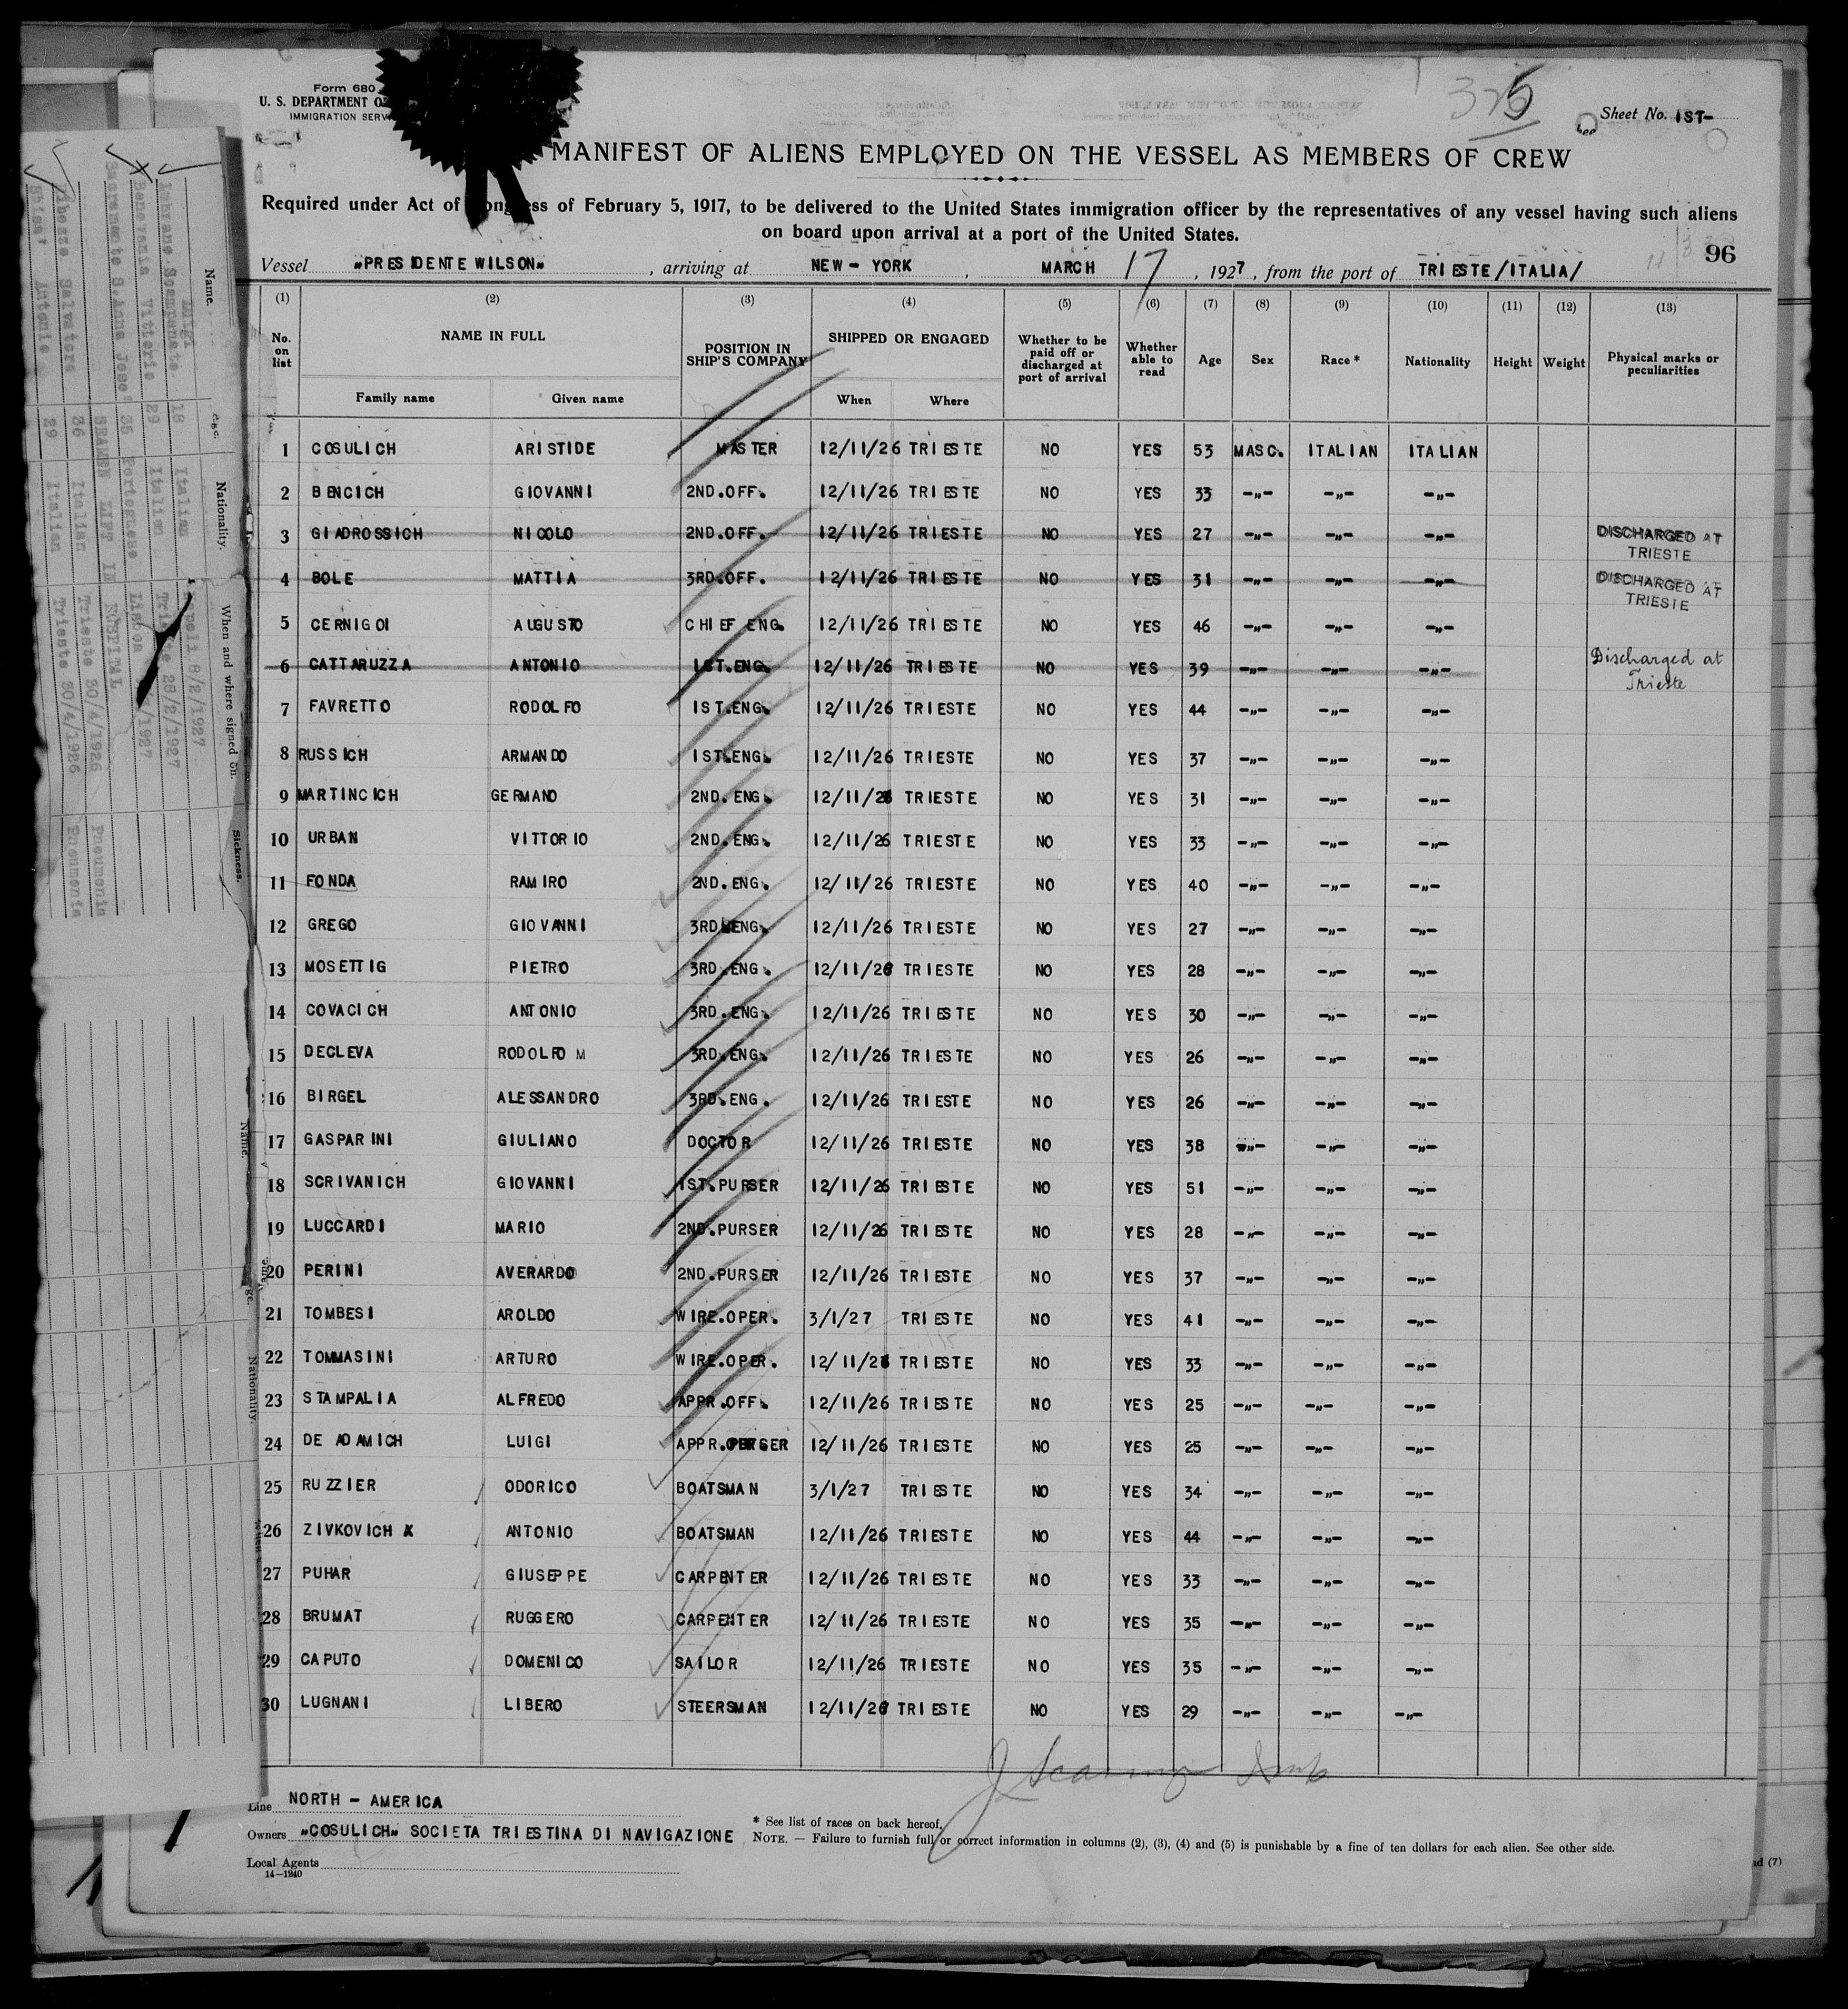 Form 680
U. S. DEPARTMENT
IMMIGRATION
Sheet No. 1ST-
MANIFEST OF ALIENS EMPLOYED ON THE VESSEL AS MEMBERS OF CREW
Required under Act of Congress of February 5, 1917, to be delivered to the United States immigration officer by the representatives of any vessel having such aliens
on board upon arrival at a port of the United States.
96
Vessel „PRESIDENTE WILSON„ , arriving at NEW - YORK , MARCH 17 , 1927 , from the port of TRIESTE/ITALIA/
(1) (2) (3) (4) (5) (6) (7) (8) (9) (10) (11) (12) (13)
No. on list NAME IN FULL POSITION IN SHIP'S COMPANY SHIPPED OR ENGAGED Whether to be paid off or discharged at port of arrival Whether able to read Age Sex Race * Nationality Height Weight Physical marks or peculiarities
Family name Given name When Where
1 COSULICH ARISTIDE MASTER 12/11/26 TRIESTE NO YES 53 MASC. ITALIAN ITALIAN
2 BENCICH GIOVANNI 2ND.OFF. 12/11/26 TRIESTE NO YES 33 -„- -„- -„-
3 GIADROSSICH NICOLO 2ND.OFF. 12/11/26 TRIESTE NO YES 27 -„- -„- -„- DISCHARGED AT TRIESTE
4 BOLE MATTIA 3RD.OFF. 12/11/26 TRIESTE NO YES 31 -„- -„- -„- DISCHARGED AT TRIESTE
5 CERNIGOI AUGUSTO CHIEF ENG. 12/11/26 TRIESTE NO YES 46 -„- -„- -„-
6 CATTARUZZA ANTONIO 1ST.ENG. 12/11/26 TRIESTE NO YES 39 -„- -„- -„- Discharged at Trieste
7 FAVRETTO RODOLFO 1ST.ENG. 12/11/26 TRIESTE NO YES 44 -„- -„- -„-
8 RUSSICH ARMANDO 1ST.ENG. 12/11/26 TRIESTE NO YES 37 -„- -„- -„-
9 MARTINCICH GERMANO 2ND.ENG. 12/11/26 TRIESTE NO YES 31 -„- -„- -„-
10 URBAN VITTORIO 2ND.ENG. 12/11/26 TRIESTE NO YES 33 -„- -„- -„-
11 FONDA RAMIRO 2ND.ENG. 12/11/26 TRIESTE NO YES 40 -„- -„- -„-
12 GREGO GIOVANNI 3RD.ENG. 12/11/26 TRIESTE NO YES 27 -„- -„- -„-
13 MOSETTIG PIETRO 3RD.ENG. 12/11/26 TRIESTE NO YES 28 -„- -„- -„-
14 COVACICH ANTONIO 3RD.ENG. 12/11/26 TRIESTE NO YES 30 -„- -„- -„-
15 DECLEVA RODOLFO M 3RD.ENG. 12/11/26 TRIESTE NO YES 26 -„- -„- -„-
16 BIRGEL ALESSANDRO 3RD.ENG. 12/11/26 TRIESTE NO YES 26 -„- -„- -„-
17 GASPARINI GIULIANO DOCTOR 12/11/26 TRIESTE NO YES 38 -„- -„- -„-
18 SCRIVANICH GIOVANNI 1ST.PURSER 12/11/26 TRIESTE NO YES 51 -„- -„- -„-
19 LUCCARDI MARIO 2ND.PURSER 12/11/26 TRIESTE NO YES 28 -„- -„- -„-
20 PERINI AVERARDO 2ND.PURSER 12/11/26 TRIESTE NO YES 37 -„- -„- -„-
21 TOMBESI AROLDO WIRE.OPER. 3/1/27 TRIESTE NO YES 41 -„- -„- -„-
22 TOMMASINI ARTURO WIRE.OPER. 12/11/26 TRIESTE NO YES 33 -„- -„- -„-
23 STAMPALIA ALFREDO APPR.OFF. 12/11/26 TRIESTE NO YES 25 -„- -„- -„-
24 DE ADAMICH LUIGI APPR.PURSER 12/11/26 TRIESTE NO YES 25 -„- -„- -„-
25 RUZZIER ODORICO BOATSMAN 3/1/27 TRIESTE NO YES 34 -„- -„- -„-
26 ZIVKOVICH X ANTONIO BOATSMAN 12/11/26 TRIESTE NO YES 44 -„- -„- -„-
27 PUHAR GIUSEPPE CARPENTER 12/11/26 TRIESTE NO YES 33 -„- -„- -„-
28 BRUMAT RUGGERO CARPENTER 12/11/26 TRIESTE NO YES 35 -„- -„- -„-
29 CAPUTO DOMENICO SAILOR 12/11/26 TRIESTE NO YES 35 -„- -„- -„-
30 LUGNANI LIBERO STEERSMAN 12/11/26 TRIESTE NO YES 29 -„- -„- -„-
Line NORTH - AMERICA
Owners „COSULICH„ SOCIETA TRIESTINA DI NAVIGAZIONE
Local Agents
14-1240
* See list of races on back hereof.
NOTE. — Failure to furnish full or correct information in columns (2), (3), (4) and (5) is punishable by a fine of ten dollars for each alien. See other side.
Name. Age. Nationality. When and where signed on. Sickness.
Italian
18
Vittorio 29 Italian Trieste 28/2/1927
SEAMEN LEFT IN HOSPITAL
Salvatore 36 Italian Trieste 30/4/1926
29 Italian Trieste 30/4/1926
Name.
Nationality.